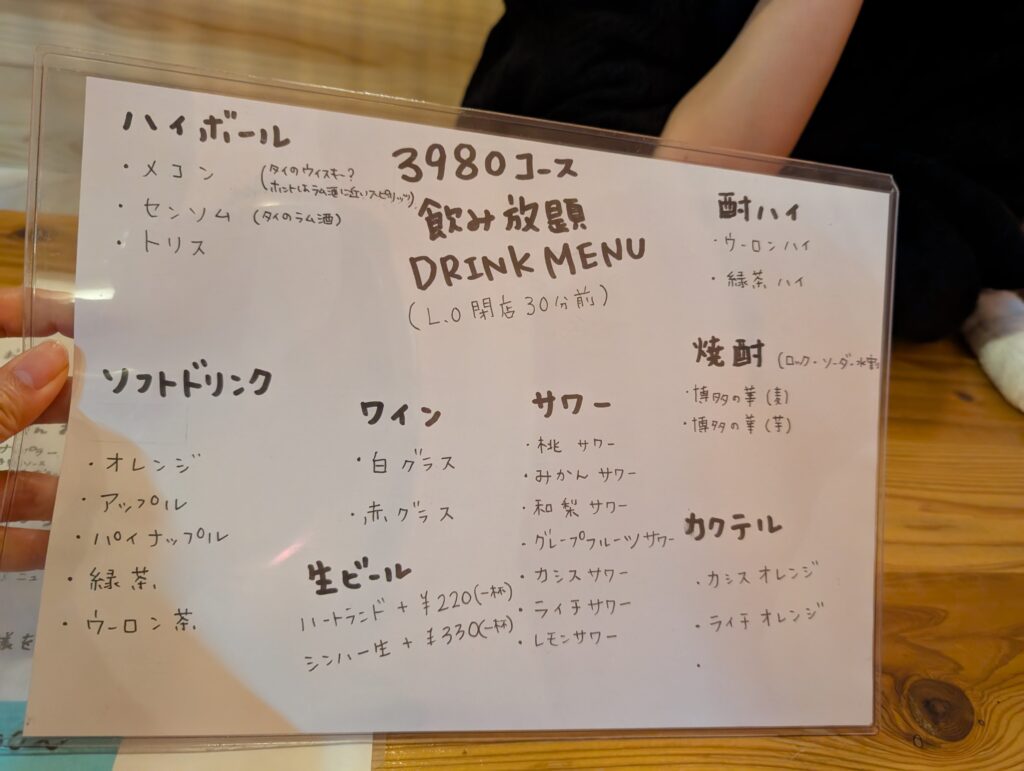 ハイボール
・メコン (タイのウィスキー?
ホントはラム酒に近いスピリッツ)
・センソム (タイのラム酒)
・トリス
3980コース
飲み放題
DRINK MENU
(L.O 閉店30分前)
酎ハイ
・ウーロンハイ
・緑茶ハイ
焼酎 (ロック・ソーダー水割
・博多の華(麦)
・博多の華(芋)
ソフトドリンク
・オレンジ
・アップル
・パイナップル
・緑茶
・ウーロン茶
ワイン
・白グラス
・赤グラス
生ビール
ハートランド + ¥220(一杯)
シンハー生 + ¥330(一杯)
サワー
・桃サワー
・みかんサワー
・和梨サワー
・グレープフルーツサワー
・カシスサワー
・ライチサワー
・レモンサワー
カクテル
・カシスオレンジ
・ライチオレンジ
・